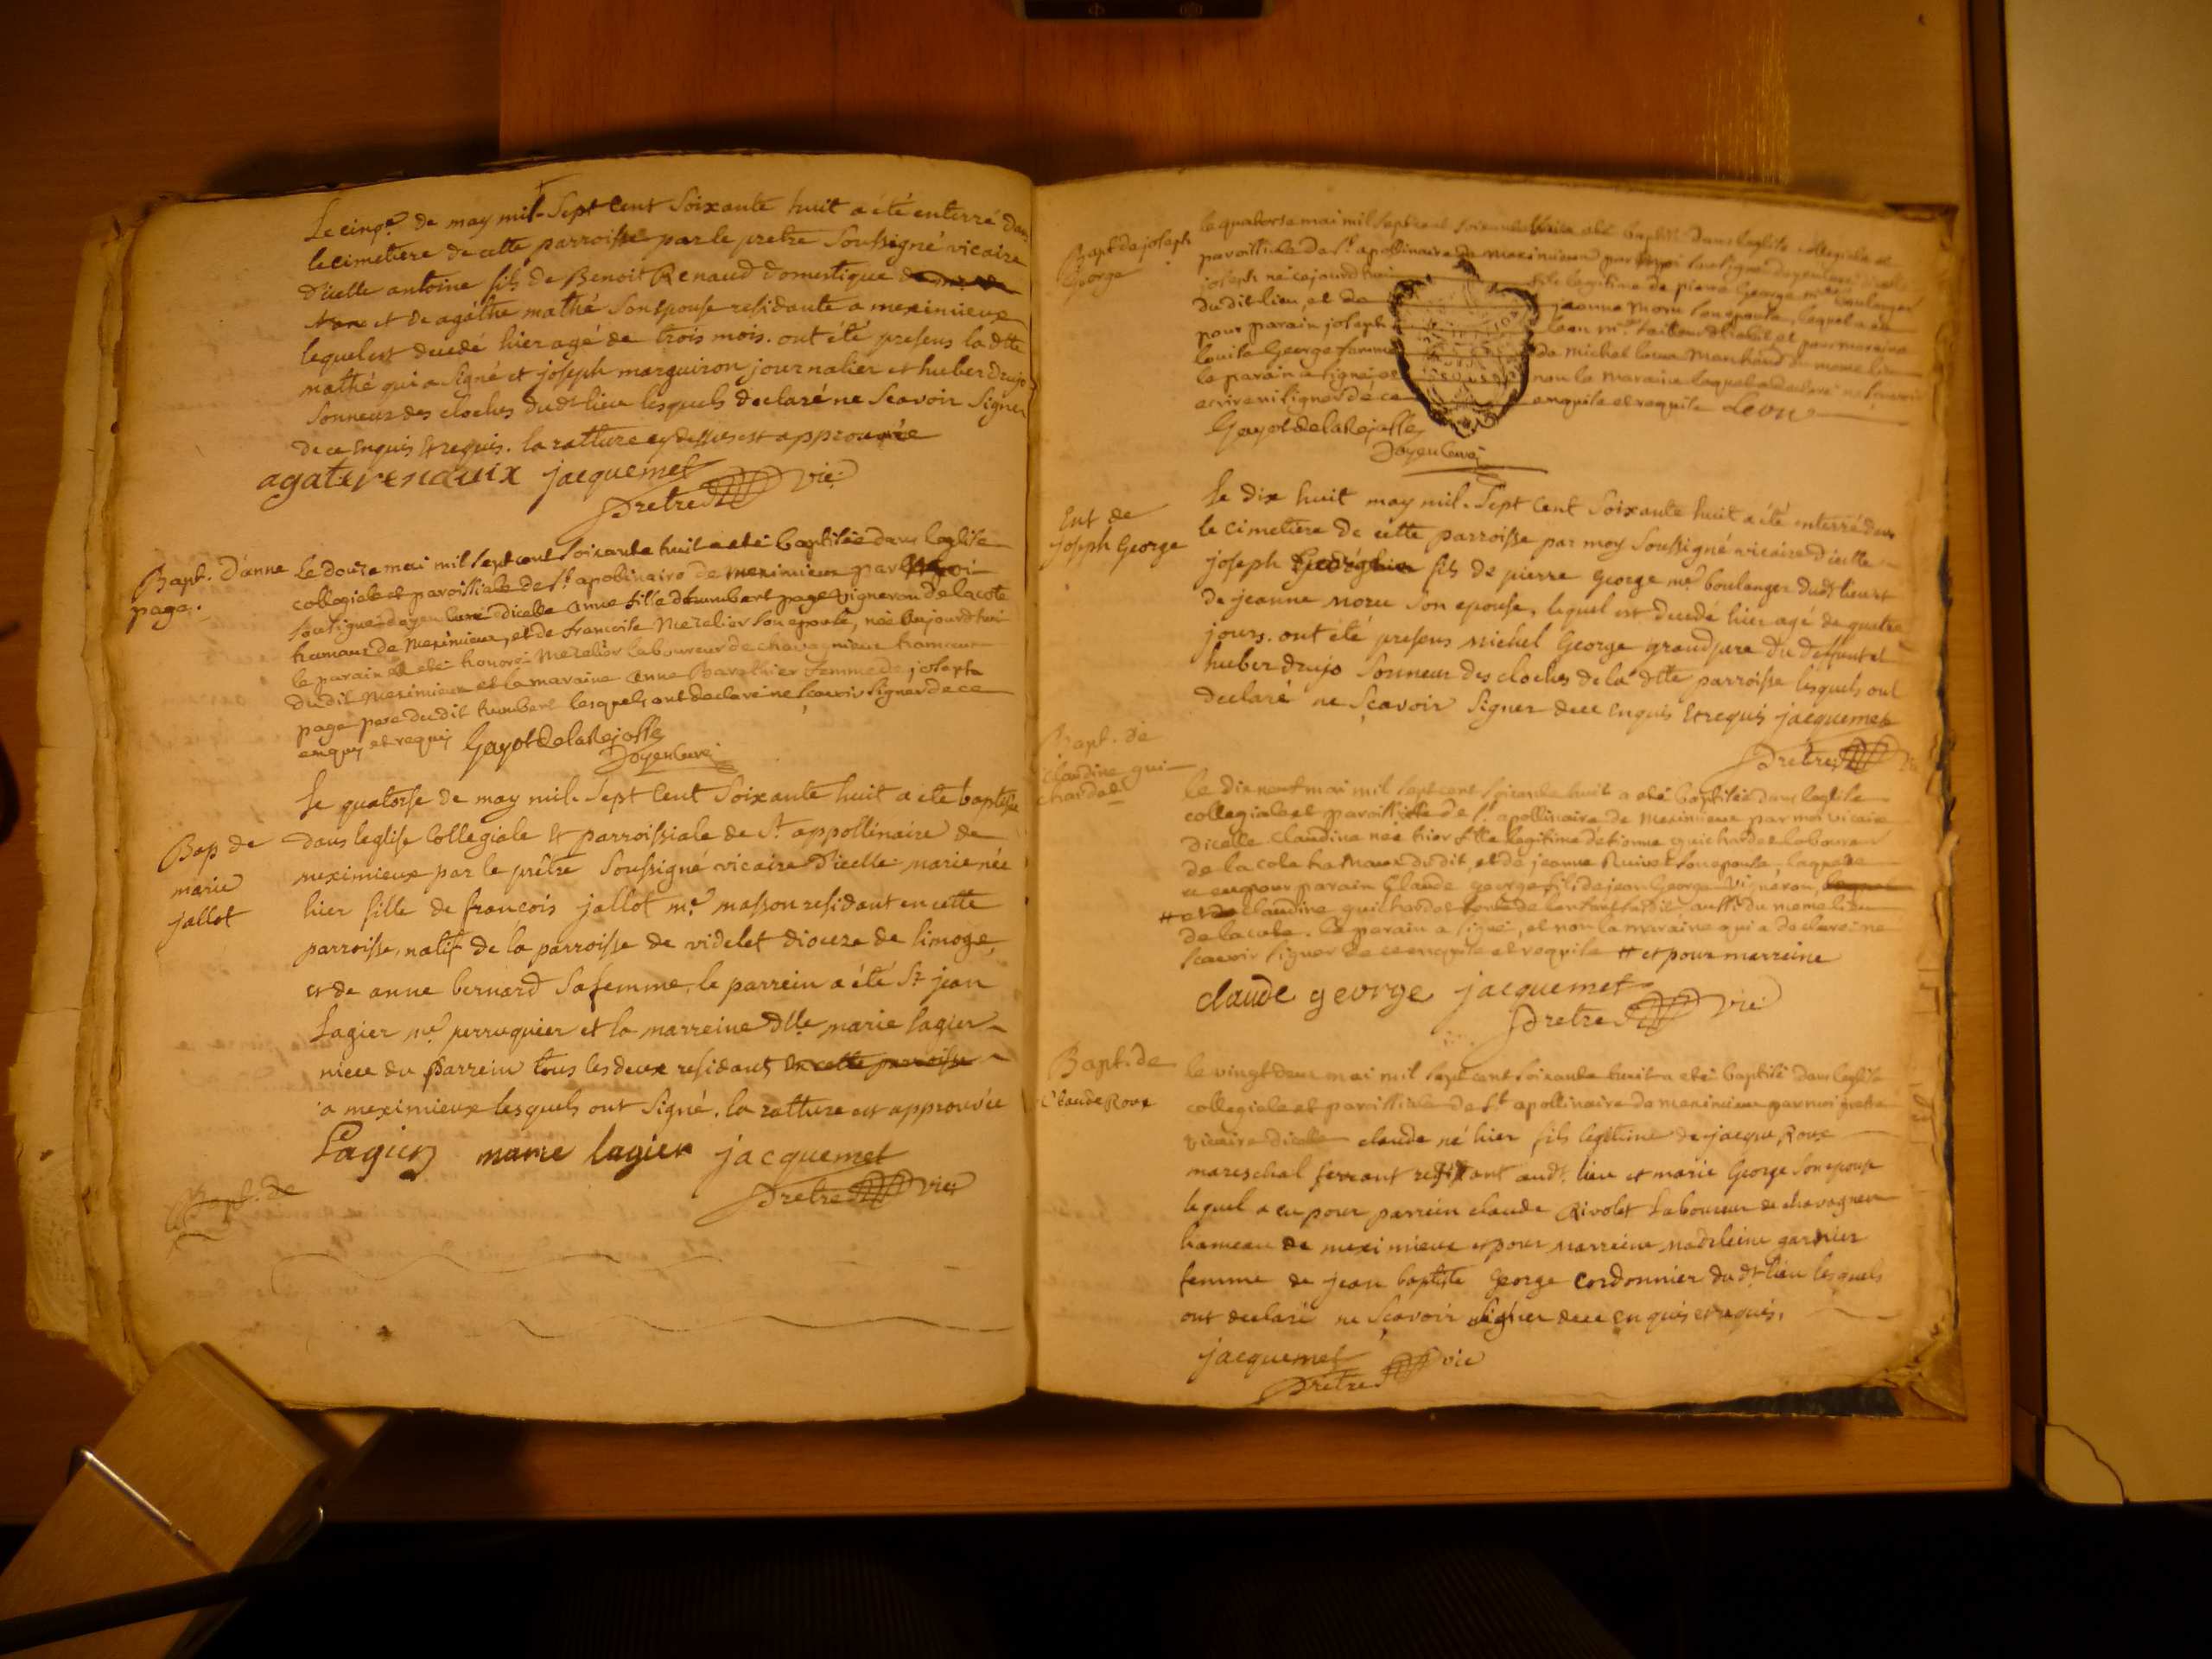 Le cinqe. de may mil-Sept Cent Soixante huit a été enterré dans
le cimetiere de cette parroisse par le pretre Soussigné vicaire
D'icelle antoine fils de Benoit Renaud domestique
et de agáthe mathé Son epouse residante a meximieux
lequel est decedé hier agé de trois mois. ont été presens la dtte
mathé qui a Signé et joseph marguiron journalier et huber drujo
Sonneur des cloches dudt lieu lesquels declaré ne Scavoir Signer
de ce enquis et requis. la ratture cy dessus est approuvée
agate renauix jacquemet
pretre vic:
Bapt. D'anne
page.
Le douze mai mil sept cent soixante huit a eté baptisée dans l'eglise
collegiale et paroissiale de st. apolinaire de meximieux par moi
soussigné doyen curé dicelle anne fille d'humbert page vigneron de la cote
hameau de meximieux, et de francoise mezelier son epouse, née aujourd'huy
le parain a eté honoré mezelier laboureur de chavagnieux hameau
dudit meximieux et la maraine anne Barathier femme de joseph
page pere dudit humbert lesquels ont declaré ne sçavoir signer de ce
enquis et requis Gayot de la Rejasse
Doyen Curé
Bap de
marie
jallot
Le quatorse de may mil-Sept Cent Soixante huit a été baptisée
dans leglise Collegiale et parroissiale de St appollinaire de
meximieux par le prêtre Soussigné vicaire D'icelle marie née
hier fille de francois jallot me. masson residant en cette
parroisse, natif de la parroisse de videlet dioceze de limoge,
et de anne bernard Sa femme, le parrein a été Sr jean
Lagier me. perruquier et la marreine dlle marie lagier
niece du parrein tous les deux residants en cette parroisse
a meximieux lesquels ont Signé. la ratture est approuvée
Lagier marie lagier jacquemet
pretre vic:
Bapt. de
Bapt de joseph
George
le quatorse mai mil sept cent soixante huit a eté baptisé dans leglise collegiale et
paroissiale de st. apollinaire de meximieux par moi soussigné doyen curé dicelle
joseph né cejourd'hui fils legitime de pierre George me boulanger
du dit lieu, et de jeanne moru son epouse, lequel a eu
pour parain joseph et pour maraine
louise George femme de michel Marchand du meme lieu
le parain a signé, et non la maraine laquelle a declaré ne sçavoir
ecrire ni signer de ce enquise et requise Leon
Gayot de la Rejasse
Doyen Curé
Ent de
joseph George
Le dix huit may mil-Sept Cent Soixante huit a été enterré dans
le cimetiere de cette parroisse par moy Soussigné vicaire D'icelle
joseph fils de pierre George me. boulanger dudt lieu et
de jeanne moru Son epouse, lequel est decedé hier agé de quatre
jours. ont été presens michel George grand pere du deffunt et
huber drujo Sonneur des cloches de la dtte parroisse lesquels ont
declaré ne Sçavoir Signer de ce enquis et requis jacquemet
pretre vic
Bapt. de
claudine gui-
chardet
le dix neuf mai mil sept cent soixante huit a eté baptisée dans leglise
collegiale et paroissiale de st. apollinaire de meximieux par moi vicaire
dicelle claudine née hier fille legitime d'etienne guichardet laboureur
de la cote hameau dudit, et de jeanne Ruivet son epouse, laquelle
a eu pour parain Claude george fils de jean George vigneron, lequel
# et de claudine guichardet susdit aussi du meme lieu
de la cote. Le parain a signé, et non la maraine qui a declaré ne
sçavoir signer de ce enquise et requise # et pour marreine
claude george jacquemet
pretre vic:
Bapt. de
Claude Roux
le vingt deux mai mil sept cent soixante huit a eté baptisé dans l'eglise
collegiale et paroissiale de st apollinaire de meximieux par moi pretre
vicaire dicelle claude né hier fils legitime de jacque Roux
mareschal ferrant residant audt lieu et marie George Son epouse
lequel a eu pour parrein claude Rivolet Laboureur de chavagneu
hameau de meximieux et pour marreine madeleine garnier
femme de jean baptiste George cordonnier dudt lieu lesquels
ont declaré ne Sçavoir Signer de ce enquis et requis.
jacquemet vic
pretre